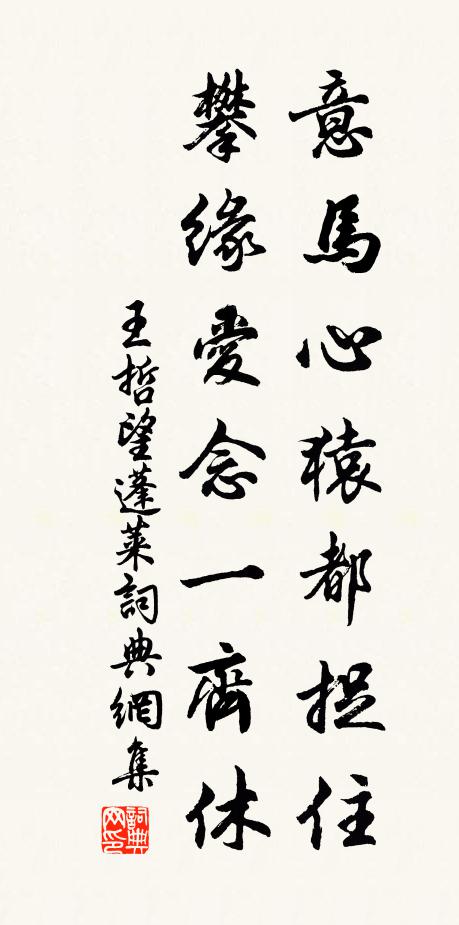 意馬心猿都捉住
攀緣愛念一齊休
王哲望蓬萊詞典網集
詞典網印